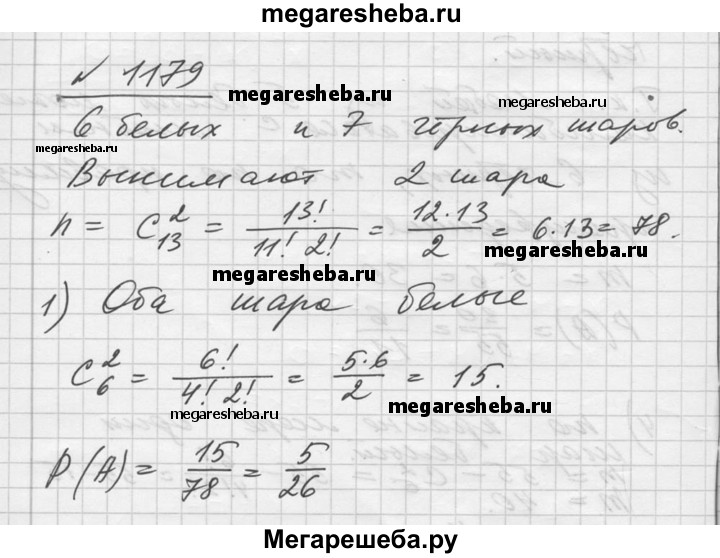 megaresheba.ru
№ 1179
megaresheba.ru
megaresheba.ru
6 белых и 7 чёрных шаров.
megaresheba.ru
Вынимают 2 шара
n = C₁₃² = 13! / 11! 2! = 12·13 / 2 = 6·13 = 78.
megaresheba.ru
megaresheba.ru
1) Оба шара белые
C₆² = 6! / 4! 2! = 5·6 / 2 = 15.
megaresheba.ru
megaresheba.ru
P(A) = 15/78 = 5/26
Мегарешеба.ру